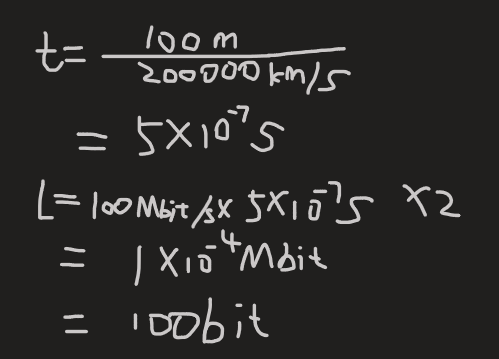 t= 100m / 200000km/s
= 5×10⁻⁷s
L=100Mbit/s× 5×10⁻⁷s ×2
= 1×10⁻⁴Mbit
= 100bit